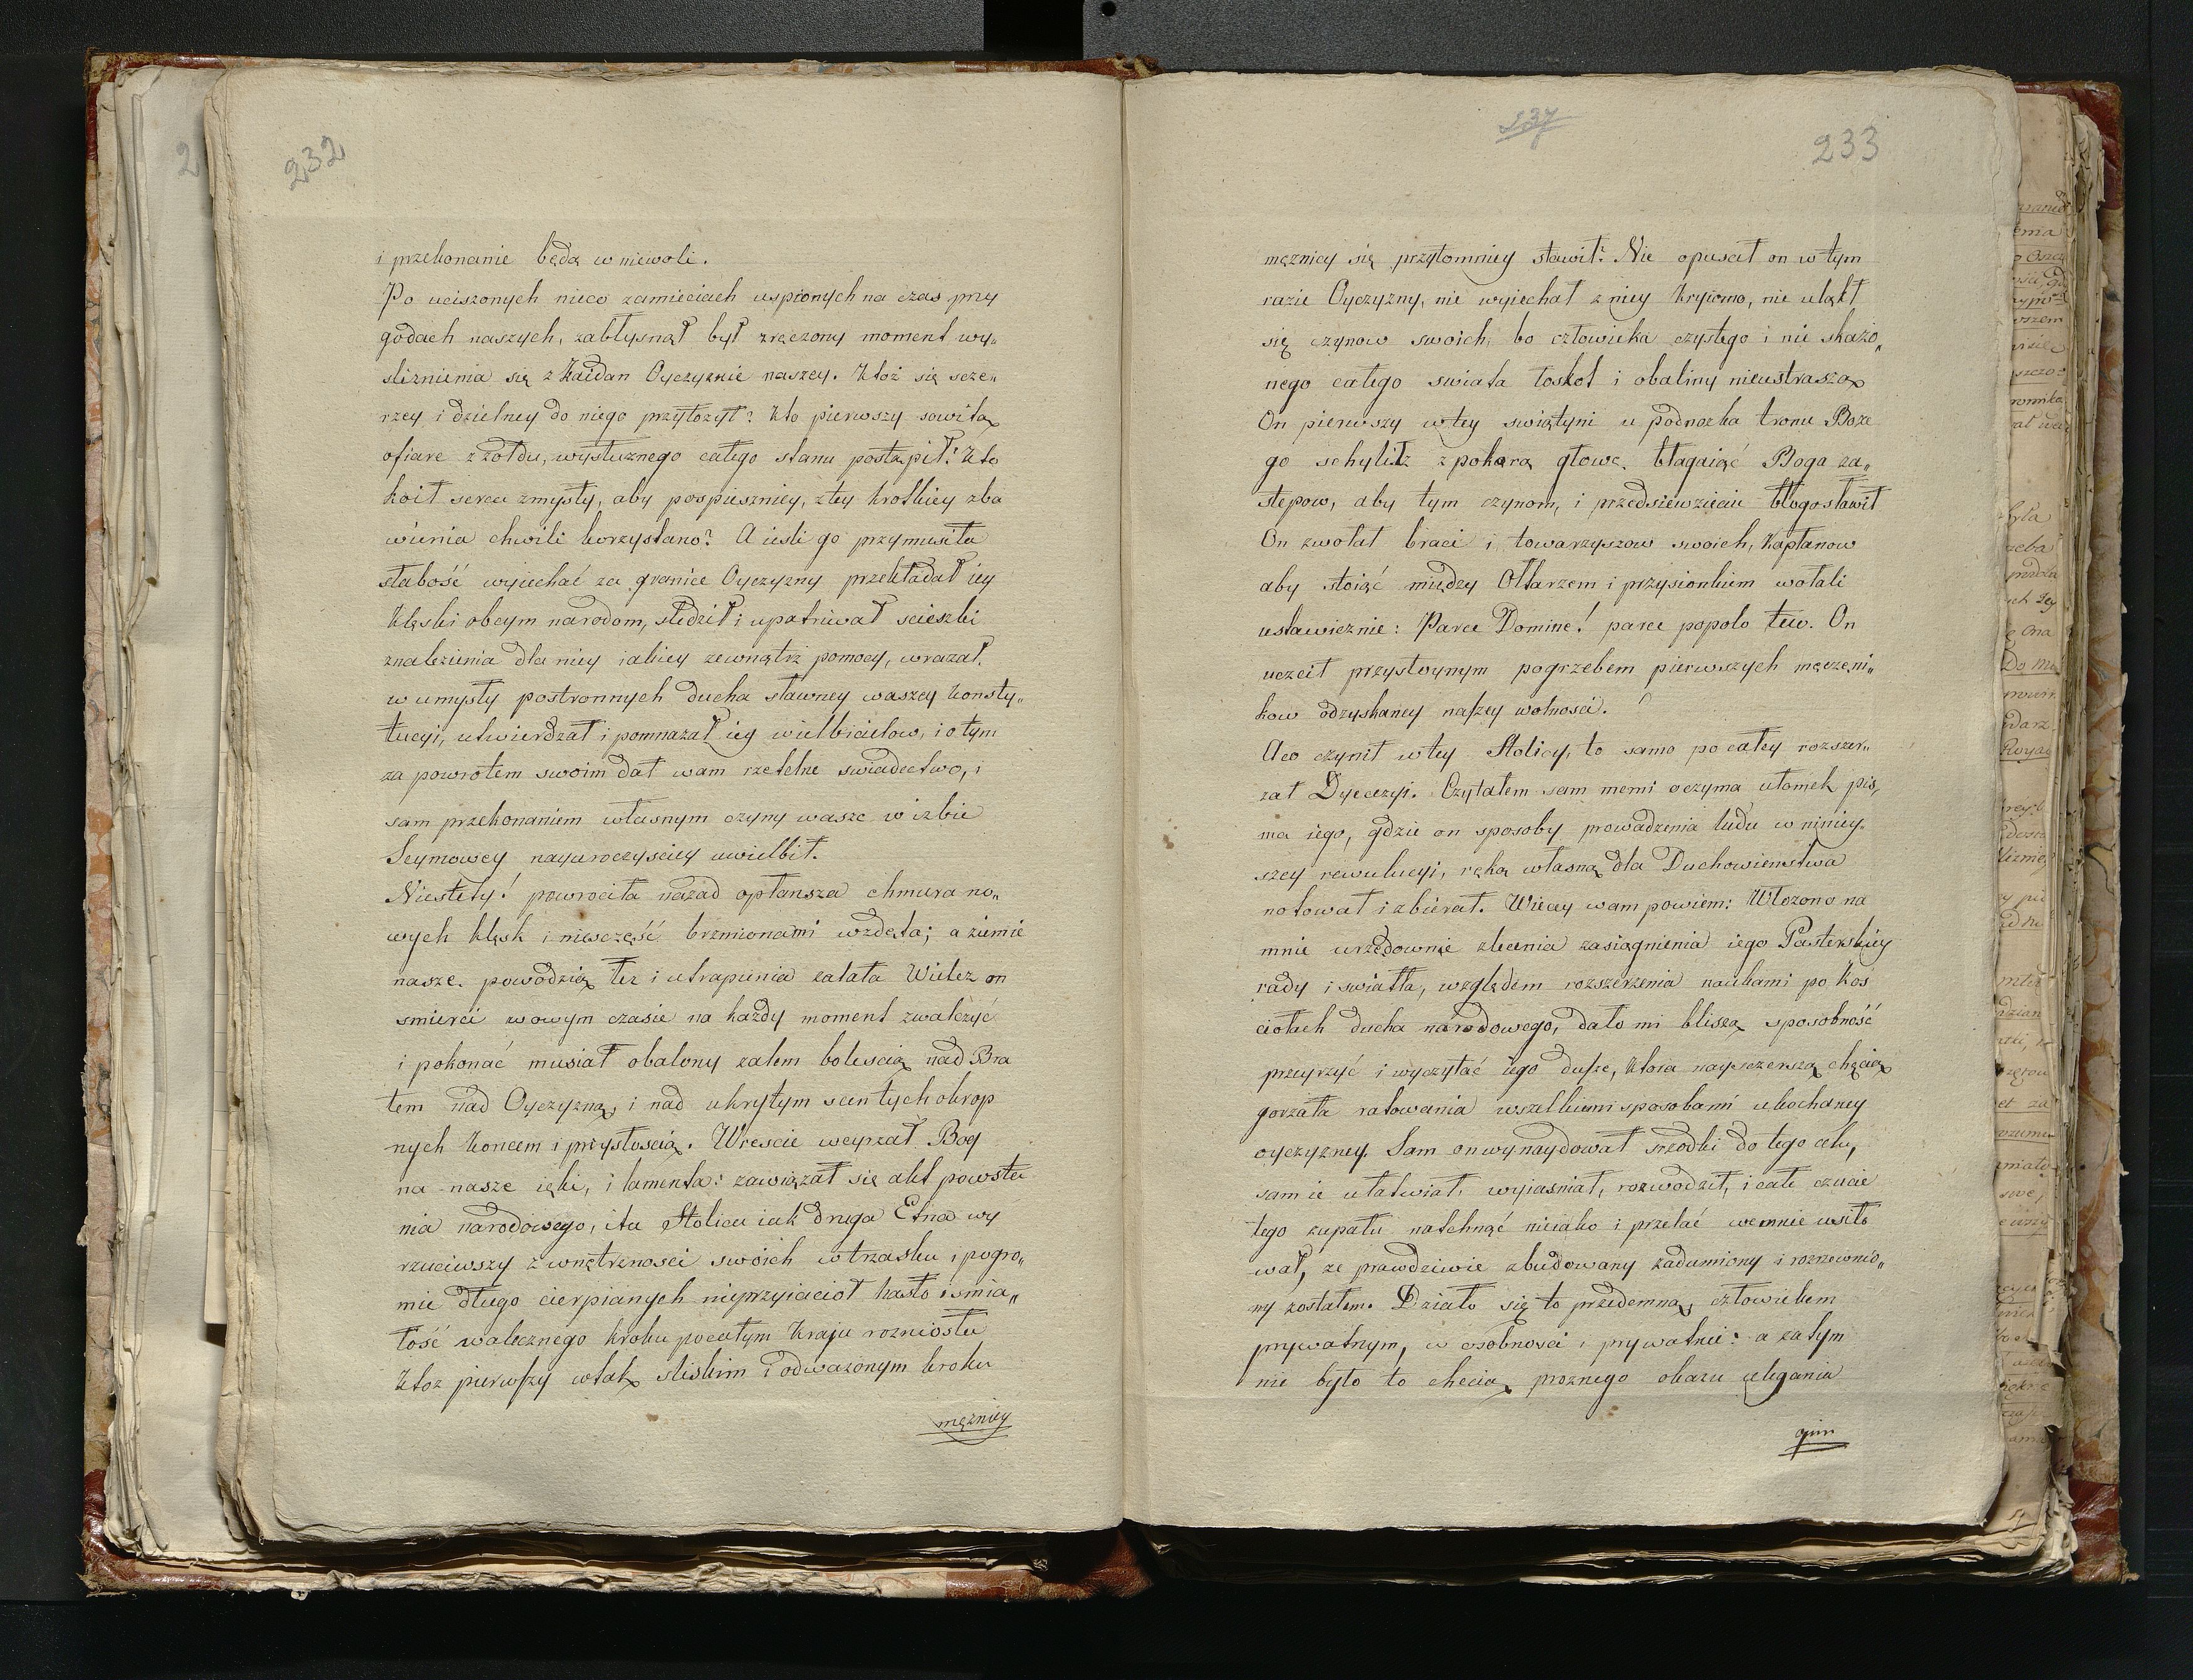 232
i przekonanie będą w niewoli.
Po uciszonych nieco zamieciach uspionych na czas przy
godach naszych, zabłysnął był zręczony moment wy„
sliznienia się z Kaidan Oyczyznie naszey. Ktoż się szcze„
rzey i dzielney do niego przyłożył? Kto pierwszy sowitą
ofiarę z żołdu, wysłużnego całego stanu postąpił? Kto
koił serca zmysły, aby pospieszniey, z tey krotkiey zba
wienia chwili korzystano? A iesli go przymusiła
słabość wyiechać za granice Oyczyzny przekładał iey
Klęski obcym narodom, sledził i upatriwał scieszki
znalezienia dla niey iakiey zewnątrż pomocy, wrażał
w umysły postronnych ducha sławney waszey Konsty„
tucyi, utwierdzał i pomnażał iey wielbicielow, i o tym
za powrotem swoim dał wam rzetelne swiadectwo, i
sam przekonaniem własnym czyny wasze w izbie
Seymowey nayuroczysciey uwielbił.
Niestety! powrociła nazad opłansza chmura no„
wych klęsk i niesczęść brzmionami wzdęta; a ziemie
nasze powodzią łez i utrapienia zalała Wieleż on
smierci w owym czasie na każdy moment zwalczyć
i pokonać musiał obalony żalem bolescią nad Bra
tem nad Oyczyzną, i nad ukrytym scen tych okrop
nych Koncem i przyszłoscią. Wrescie weyrzał Bog
na nasze ięki, i lamenta: zawiązał się akt powsta
nia narodowego, i ta Stolica iak druga Etna wy
rzuciwszy z wnętrznosci swoich w trzasku i pogro„
mie długo cierpianych nieprzyiacioł hasło i smia„
łość walecznego kroku po całym Kraju rozniosła
Ktoż pierwszy w tak sliskim i odważonym kroku
mężniey
237
233
mężniey się przytomniey stawił? Nie opuscił on w tym
razie Oyczyzny, nie wyiechał z niey Kryiomo, nie uląkł
się czynow swoich, bo człowieka czystego i nie skażo„
nego całego swiata łoskot i obaliny nieustraszą
On pierwszy w tey swiątyni u podnożka tronu Boże
go schylił z pokorą głowę, błagaiąć Boga za„
stępow, aby tym czynom, i przedsiewzięciu błogosławił
On zwołał braci i towarzyszow swoich, Kapłanow
aby stoiąć między Ołtarzem i przysionkiem wołali
ustawicznie: Parce Domine! parce popolo tuo. On
uczcił przystoynym pogrzebem pierwszych męczeni„
kow odzyskaney naszey wolnosci.
A co czynił w tey Stolicy, to samo po całey rozszer„
zał Dyecezyi. Czytałem sam memi oczyma ułomek pis„
ma iego, gdzie on sposoby prowadzenia ludu w niniey„
szey rewulucyi, ręką własną dla Duchowienstwa
notował i zbierał. Więcey wam powiem: Włożono na
mnie urzędownie zlecenia zasiągnienia iego Pasterskiey
rady i swiatła, względem rozszerzenia naukami po Koś
ciołach ducha narodowego, dało mi bliszą sposobność
przeyrzyć i wyczytać iego duszę, Ktora nayszczerszą chęcią
gorzała ratowania wszelkiemi sposobami ukochaney
oyczyzney. Sam on wynaydował srzodki do tego celu,
sam ie ułatwiał, wyiasniał, rozwodził, i całe czucie
tego zapału natchnąć nieiako i przelać wemnie usiło
wał, że prawdziwie zbudowany zadumiony i rozrzewnio„
ny zostałem. Działo się to przedemną, człowiekem
prywatnym, w osobnosci i prywatnie: a zatym
nie było to chęcią prożnego okazu ubiegania